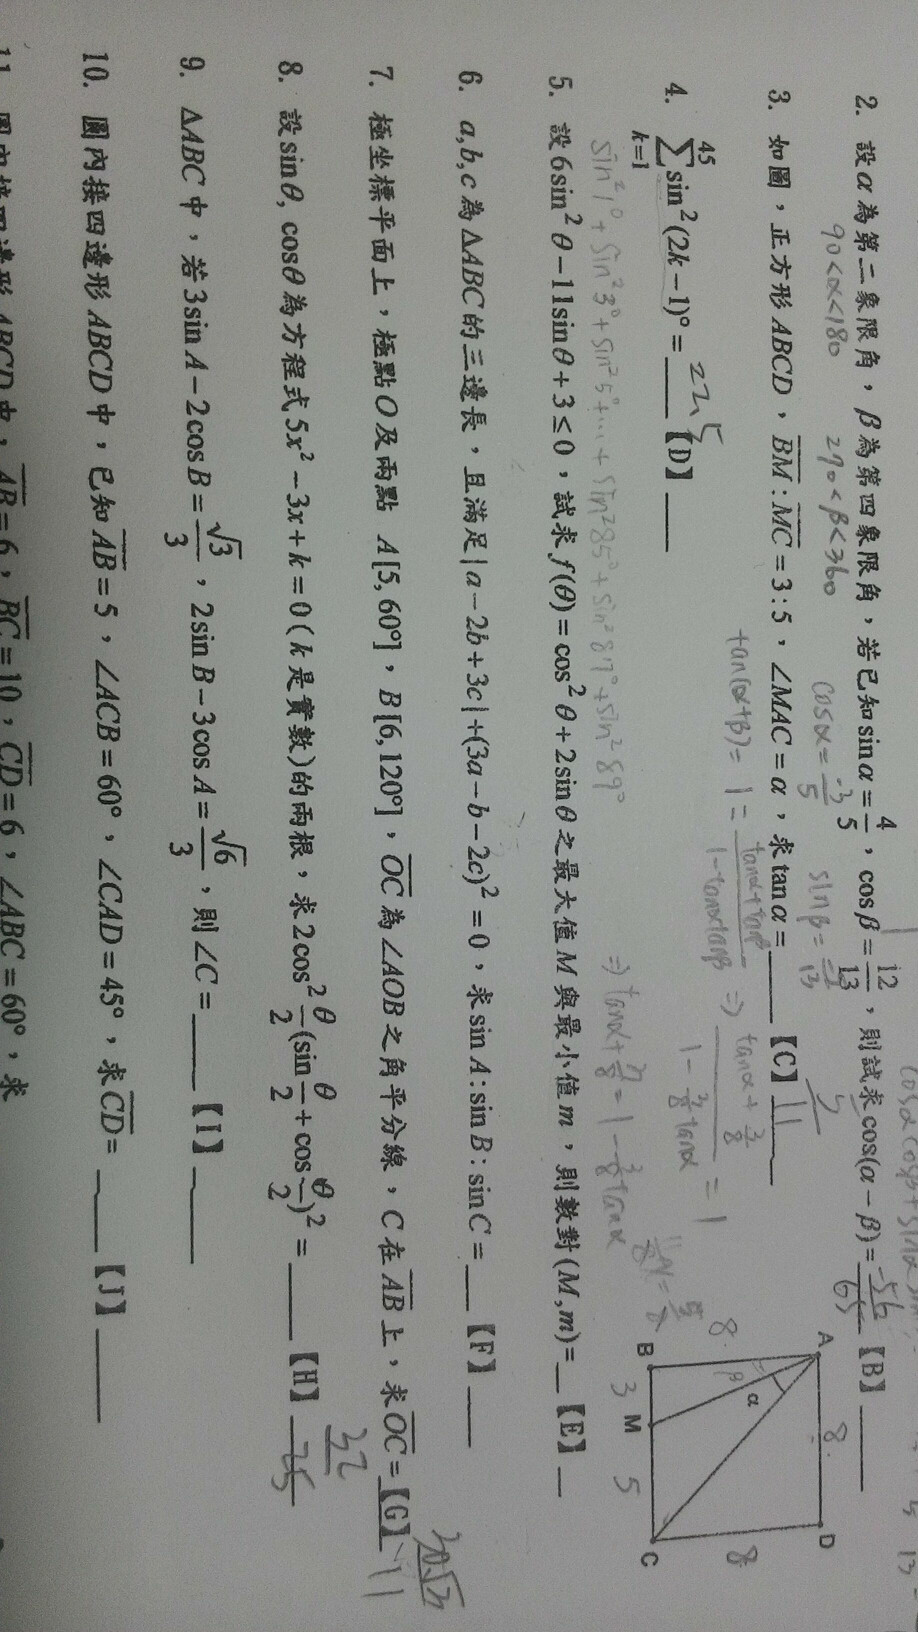 2. 設α為第二象限角，β為第四象限角，若已知sinα=4/5，cosβ=12/13，則試求cos(α−β)=-56/65【B】____
90<α<180 270<β<360 cosα=-3/5 sinβ=
3. 如圖，正方形ABCD，BM:MC=3:5，∠MAC=α，求tanα=____【C】5/11
tan(α+β)=1=(tanα+tanβ)/(1-tanαtanβ) ⇒ (tanα+3/8)/(1-3/8tanα)=1
⇒ tanα+3/8=1-3/8tanα
A
B
M
C
D
α
β
8
8
8
3
5
4. ∑_{k=1}^{45} sin²(2k−1)°=____【D】____
22.5
sin²1°+sin²3°+sin²5°+…+sin²85°+sin²87°+sin²89°
5. 設6sin²θ−11sinθ+3≤0，試求f(θ)=cos²θ+2sinθ之最大值M與最小值m，則數對(M,m)=__【E】__
6. a,b,c為ΔABC的三邊長，且滿足|a−2b+3c|+(3a−b−2c)²=0，求sinA:sinB:sinC=___【F】___
7. 極坐標平面上，極點O及兩點 A[5,60°]，B[6,120°]，OC為∠AOB之角平分線，C在AB上，求OC=【G】
30√3/11
8. 設sinθ, cosθ為方程式5x²−3x+k=0(k是實數)的兩根，求2cos²θ/2(sinθ/2+cosθ/2)²=____【H】32/25
9. ΔABC中，若3sinA−2cosB=√3/3，2sinB−3cosA=√6/3，則∠C=____【I】____
10. 圓內接四邊形ABCD中，已知AB=5，∠ACB=60°，∠CAD=45°，求CD=____【J】____
11. 圓內接四邊形ABCD中，AB=6，BC=10，CD=6，∠ABC=60°，求